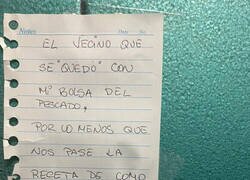 Notes
EL VECINO QUE
SE "QUEDO" CON
MI BOLSA DEL
PESCADO,
POR LO MENOS QUE
NOS PASE LA
RECETA DE COMO